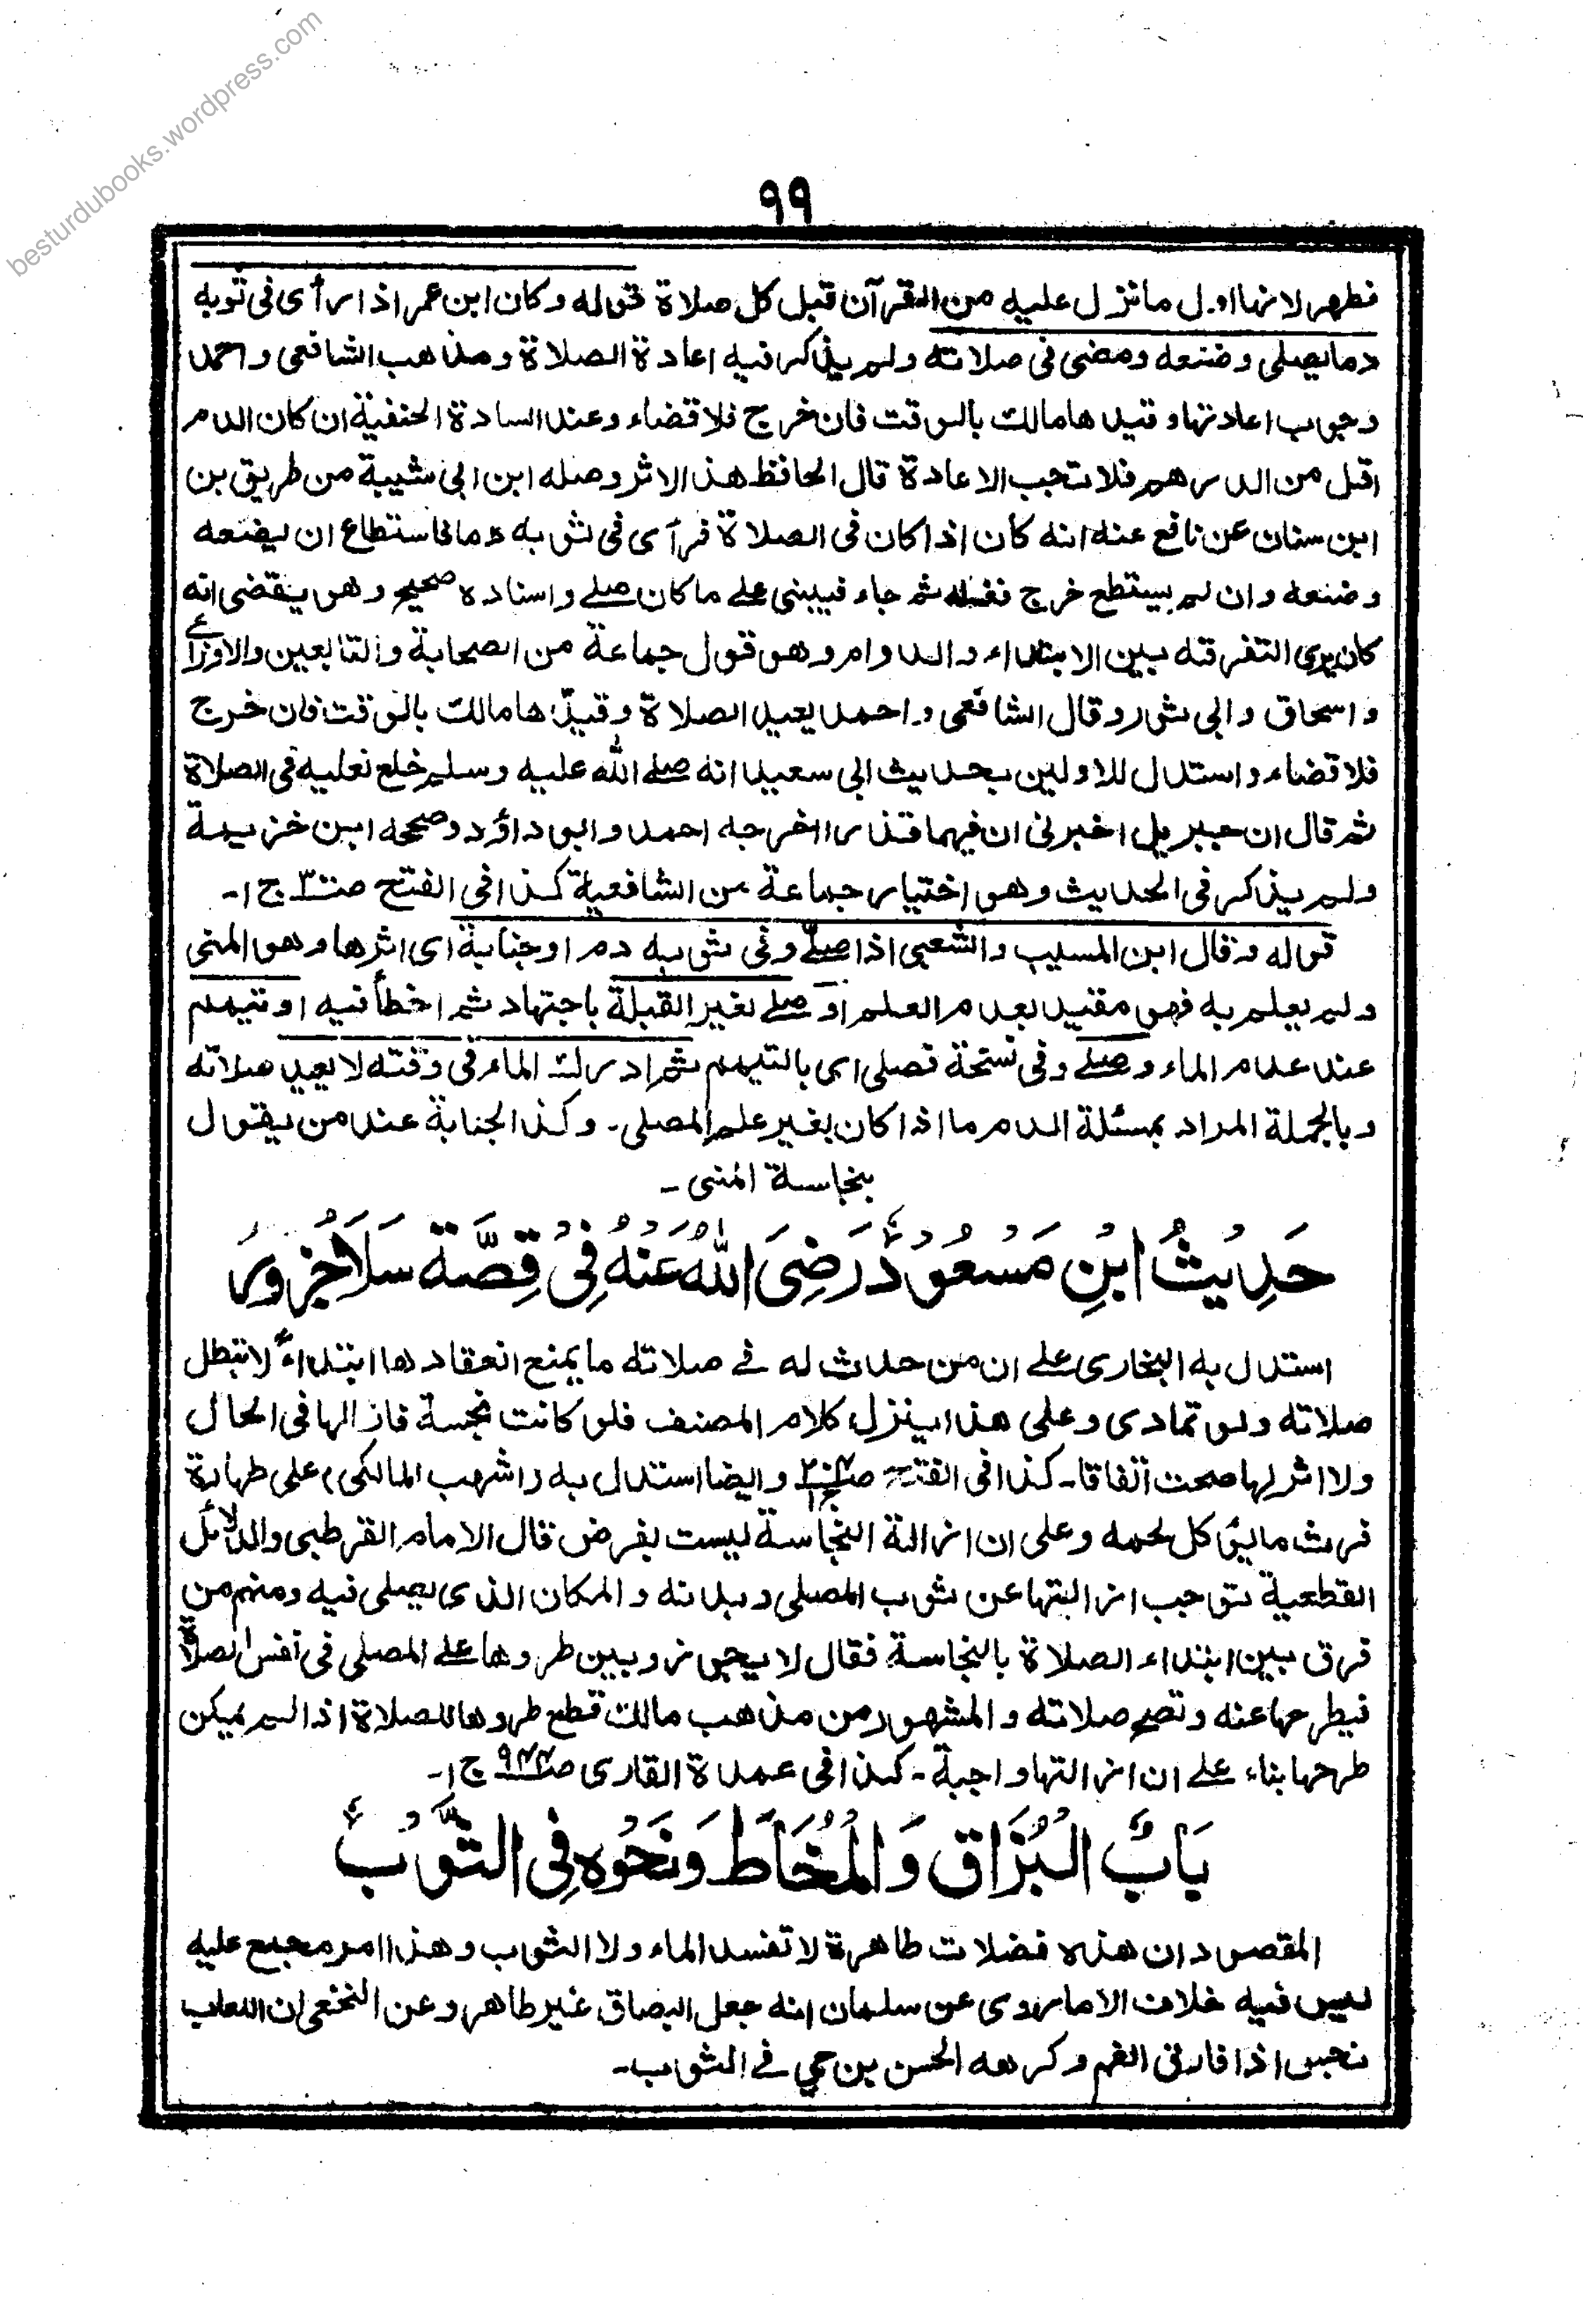 besturdubooks.wordpress.com
٩٩
فطهر لانها اول ما نزل عليه من القرآن قبل كل صلاة قوله وكان ابن عمر اذا رأى فى ثوبه
دما يصلى وضعه ومضى فى صلاته ولم يذكر فيه اعادة الصلاة ومذهب الشافعى واحمد
وجوب اعادتها وقيدها مالك بالوقت فان خرج فلا قضاء وعند السادة الحنفية ان كان الدم
اقل من الدرهم فلا تجب الاعادة قال الحافظ هذا الاثر وصله ابن ابى شيبة من طريق بن
ابن سنان عن نافع عنه انه كان اذا كان فى الصلاة فرآى فى ثوبه دما فاستطاع ان يضعه
وضعه وان لم يستطع خرج نفسله ثم جاء فيبنى على ما كان صلے واسناده صحيح وهو يقضى انه
كان يرى التفرقه بين الابتداء والدوام وهو قول جماعة من الصحابة والتابعين والاوزاعے
واسحاق وابى ثور وقال الشافعى واحمد يعيد الصلاة وقيدها مالك بالوقت فان خرج
فلا قضاء واستدل للاولين بحديث ابى سعيد انه صلے الله عليه وسلم خلع نعليه فى الصلاة
ثم قال ان جبريل اخبرنى ان فيهما قذرا اخرجه احمد وابو داؤد وصححه ابن خزيمة
ولم يذكر فى الحديث وهو اختيار جماعة من الشافعية كذا فى الفتح ج ١-
قوله وقال ابن المسيب والشعبى اذا صلے وفى ثوبه دم او جنابة اى اثرها وهو المنى
ولم يعلم به فهو مقيد بعدم العلم او صلے لغير القبلة باجتهاد ثم اخطأ فيه او تيمم
عند عدم الماء وصلے وفى نسخة فصلى اى بالتيمم ثم ادرك الماء فى وقته لا يعيد صلاته
وبالجملة المراد بمسئلة الدم ما اذا كان بغير علم المصلى - وكذا الجنابة عند من يقول
بنجاسة المنى -
حَدِيْثُ ابْنِ مَسْعُوْدٍ رَضِىَ اللّٰهُ عَنْهُ فِىْ قِصَّةِ سَلَاجَزُوْرٍ
استدل به البخارى على ان من حدث له فے صلاته ما يمنع انعقادها ابتداءً لا تبطل
صلاته ولو تمادى وعلى هذا ينزل كلام المصنف فلو كانت نجسة فازالها فى الحال
ولا اثر لها صحت اتفاقا - كذا فى الفتح وايضا استدل به (اشهب المالكى) على طهارة
فرث ما يؤكل لحمه وعلى ان ازالة النجاسة ليست بفرض قال الامام القرطبى والدلائل
القطعية توجب ازالتها عن ثوب المصلى وبدنه والمكان الذى يصلى فيه ومنهم من
فرق بين ابتداء الصلاة بالنجاسة فقال لا يجوز وبين طروها على المصلى فى نفس الصلاة
فيطرحها عنه وتصح صلاته والمشهور من مذهب مالك قطع طروها للصلاة اذا لم يمكن
طرحها بناء على ان ازالتها واجبة - كذا فى عمدة القارى ص ٩٤٤ ج ١-
بَابُ الْبُزَاقِ وَالْمُخَاطِ وَنَحْوِهِ فِى الثَّوْبِ
المقصود ان هذه فضلات طاهرة لا تفسد الماء ولا الثوب وهذا امر مجمع عليه
ليس فيه خلاف الا ما روى عن سلمان انه جعل البصاق غير طاهر وعن النخعى ان اللعاب
نجس اذا فارق الفم وكرهه الحسن بن حي فے الثوب -